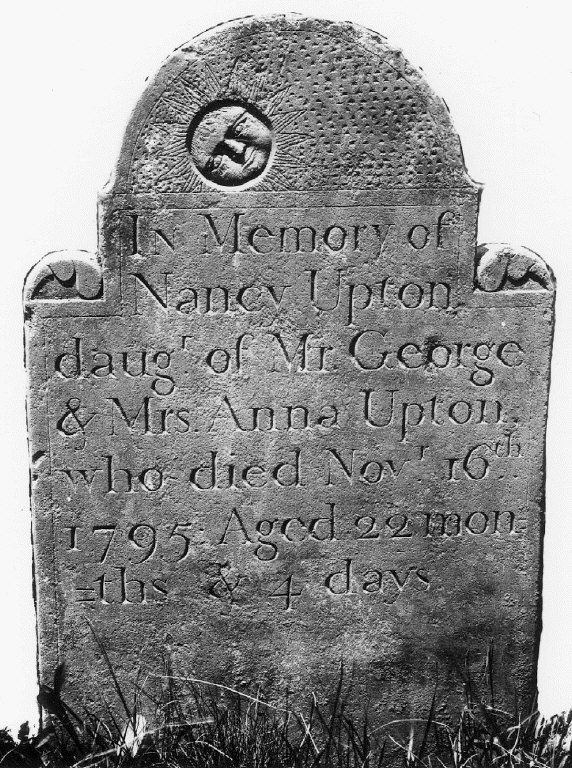 In Memory of
Nancy Upton
daugr of Mr. George
& Mrs. Anna Upton,
who died Novr 16th
1795 Aged 22 mon=
=ths & 4 days